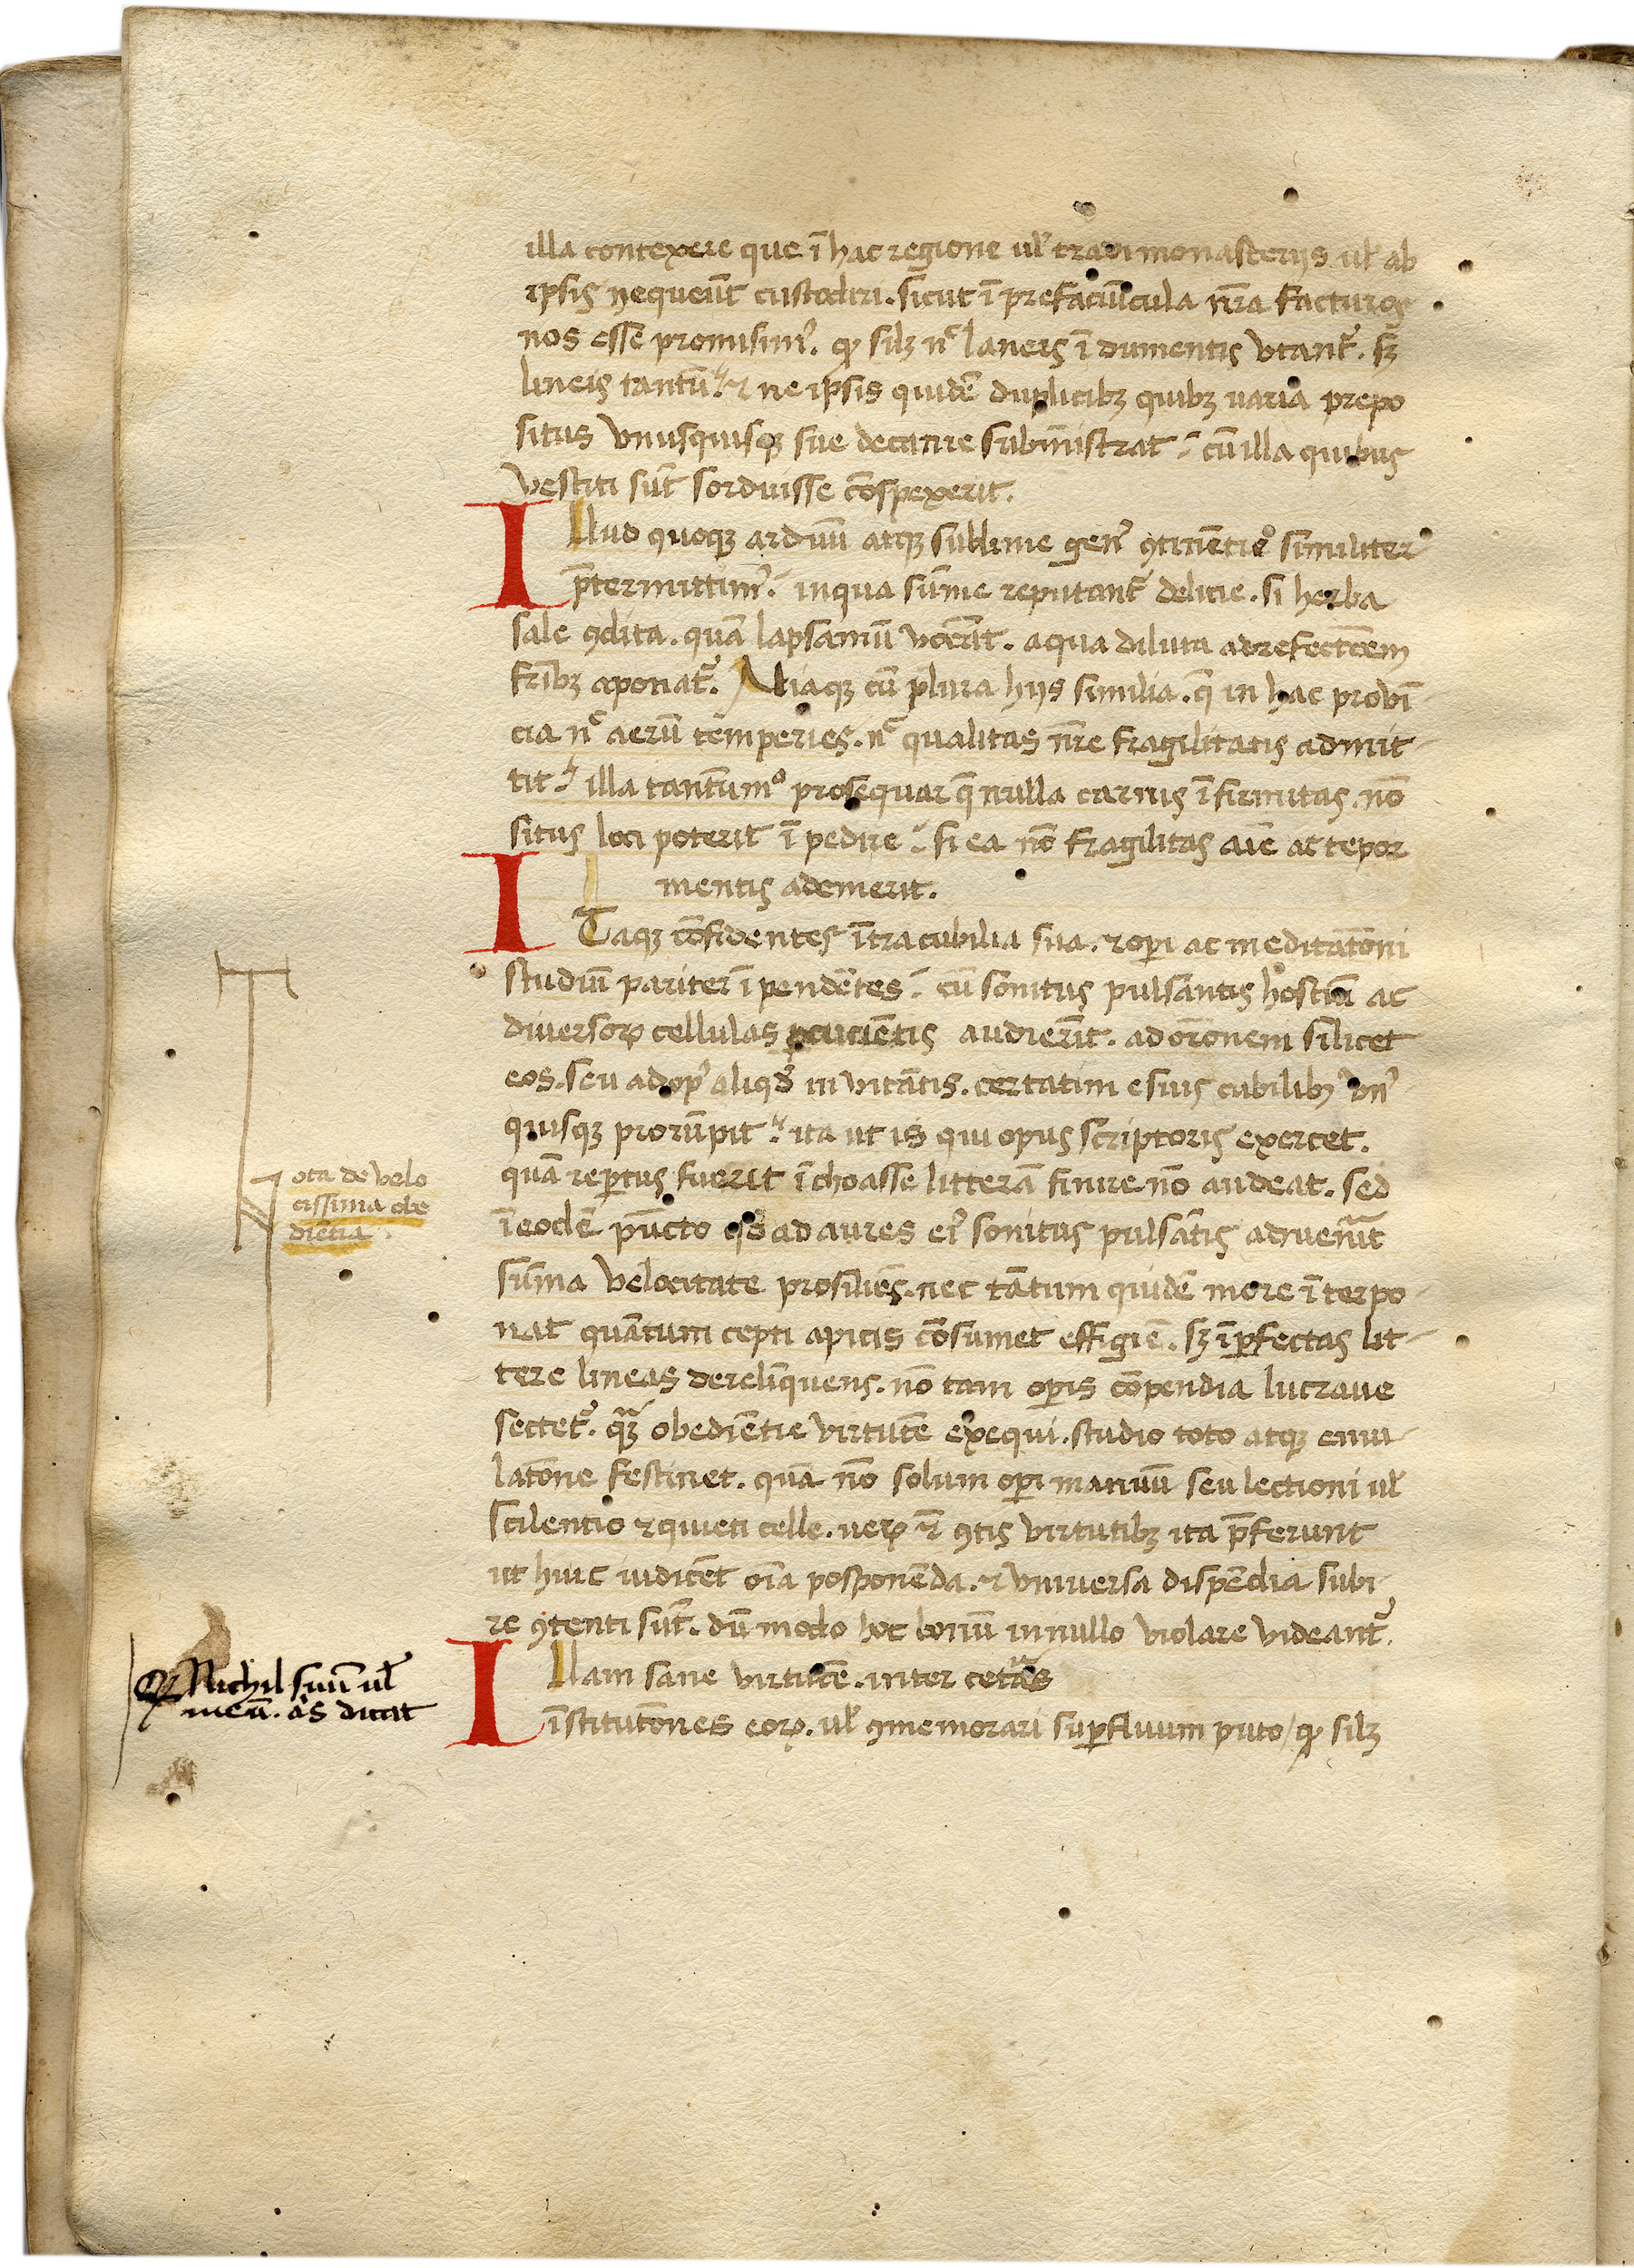 illa contexere que ī hac regione ul' tradi monasterijs ul' ab
ipsis nequeūt custodiri. sicut ī prefaciūcula nr̄a facturos
nos esse promisim᷒. qꝫ silꝫ nͨ laneis ī dumentis vtant᷑. sꝫ
lineis tantū. ⁊ ne ipsis quidē duplicibꝫ quibꝫ uaria prepo
situs vnusquisqꝫ sue decanie submīstrat. cū illa quibus
vestiti sūt sorduisse cōspexerit.
Illud quoqꝫ arduū atqꝫ sublime gen᷒ ꝯtinētie similiter
p̄termittim᷒. inqua sūme reputant᷑ delicie. si herba
sale ꝯdita. quā lapsaniū vocāt. aqua diluta ad refectōem
fr̄ibꝫ aponat᷑. Aliaqꝫ cū plura hijs similia. q̄ in hac provī
cia nͨ aerū temperies. nͨ qualitas nr̄e fragilitatis admit
tit. illa tantūmͦ prosequar q̄ nulla carnis īfirmitas. nō
situs loci poterit ī pedire. si ea nō fragilitas aīe ac tepor
mentis ademerit.
ITaqꝫ cōsidentes ītra cubilia sua. ⁊ oꝑi ac meditatōni
studiū pariter ī pendētes. cū sonitus pulsantis hostiū ac
diversoꝝ cellulas ꝑcucientis audierīt. ad orōnem silicet
eos. seu ad op᷒ aliqd̄ in vitātis. certatim e suis cubilibꝫ vn᷒
quisqꝫ prorūpit. ita ut is qui opus scriptoris exercet.
quā reꝑtus fuerit ī choasse litterā finire nō audeat. sed
ī eodē pūcto qd̄ ad aures ei᷒ sonitus pulsātis advenīt
sūma velocitate prosiliēs. nec tātum quidē more ī terpo
nat quātum cepti apicis cōsumet effigiē. sꝫ īꝑfectas lit
tere lineas derelīquens. nō tam oꝑis cōpendia lucraue
sectet᷑. qᷓꝫ obediētie virtutē exequi. studio toto atqꝫ emu
latōne festinet. quā nō solum oꝑi manuū seu lectioni ul'
scilentio ⁊ quieti celle. ueꝝ ⁊̄ ꝯtis virtutibꝫ ita p̄ferunt
ut huic iudicēt oīa posponēda. ⁊ vniuersa dispēdia subi
re ꝯtenti sūt. dū modo hoc bonū in nullo violare videant᷑.
ILlam sane virtutē. inter cetᷓas
īstitutōnes eoꝝ. ul' ꝯmemorari suꝑfluum puto / qꝫ silꝫ
Nota de velo
cissima obe
diētia.
Qꝫ Nichil suū ul'
meū. aīs dicat